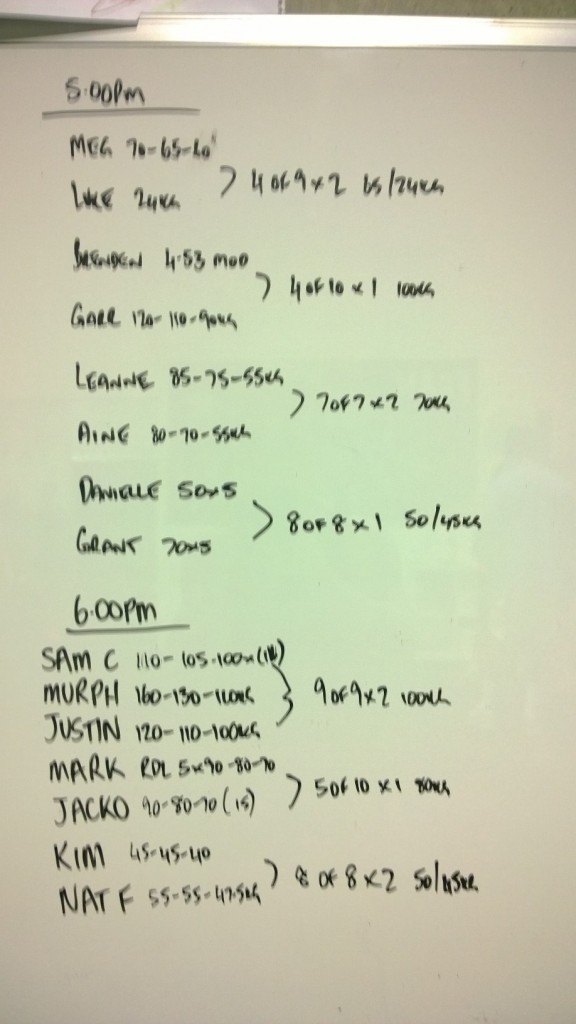 5.00pm
MEG 70-65-60
LUKE 24KG
) 4 OF 9 x 2 65/24KG
BRENDEN 4.53 MOD
GARR 120-110-90KG
) 4 OF 10 x 1 100KG
LEANNE 85-75-55KG
AINE 80-70-55KG
) 7 OF 7 x 2 70KG
DANIELLE 50x5
GRANT 70x5
) 8 OF 8 x 1 50/45KG
6.00pm
SAM C 110-105-100
MURPH 160-130-110KG
JUSTIN 120-110-100KG
} 9 OF 9 x 2 100KG
MARK RDL 5x90-80-70
JACKO 90-80-70 (15)
) 5 OF 10 x 1 80KG
KIM 45-45-40
NAT F 55-55-47.5KG
) 8 OF 8 x 2 50/45KG